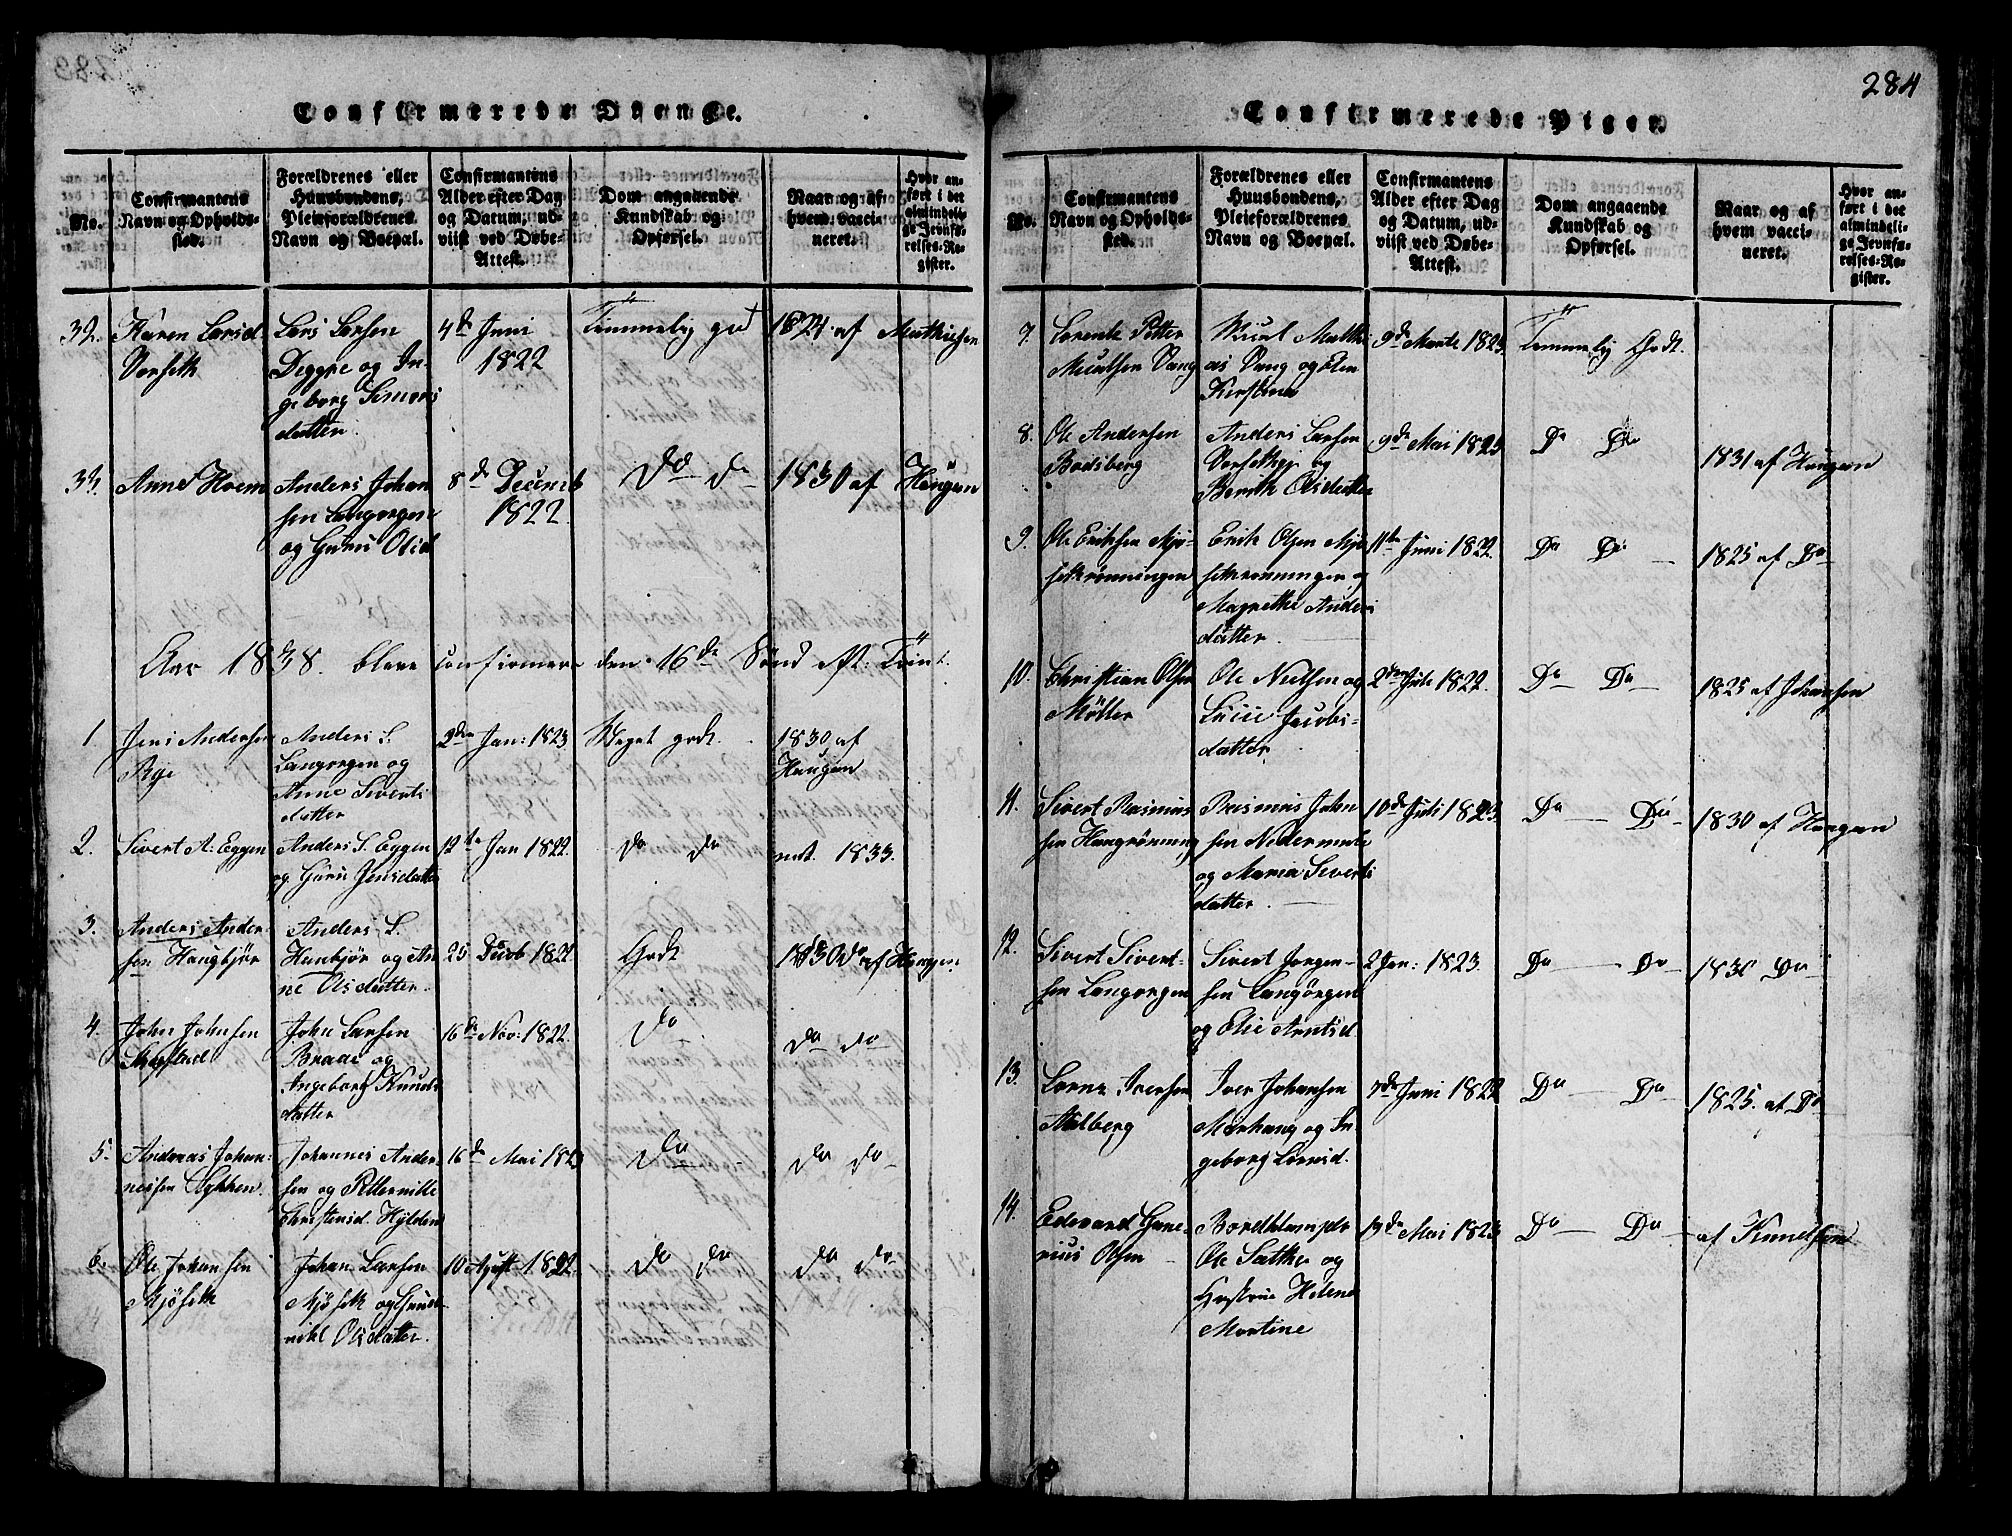 284
Confirmerede Drenge.
No.
Confirmantens
Navn og Opholds-
sted.
Forældrenes eller
Huusbondens,
Pleieforældrenes
Navn og Boepæl.
Confirmantens
Alder efter Dag
og Datum, ud-
viist ved Døbe-
Attest.
Dom angaaende
Kundskab og
Opførsel.
Naar og af
hvem vacci-
neret.
Hvor an-
ført i det
almindeli-
ge Jevnfø-
relses-Re-
gister.
32. Karen Larsd
Lars Larsen
og In-
geborg Simons
datter
4de Juni
1822
Temmelig godt
1824 af Mathiesen
33. Anne Hvem
Anders Johan
sen Langørgen
og Guru Olsd
8de Decemb
1822
Do Do
1830 af Haugan
Aar 1838 bleve confirmere den 16de Sønd eft: Trint.
1. Jens Andersen
Rye
Anders S.
Langørgen og
Anne Siverts
datter
2den Jan: 1823
Meget godt
1830 af
Haugan
2. Sivert A. Eggen
Anders S. Eggen
og Guru Jensdatter
12te Jan 1822.
Do Do
nat. 1833.
3. Anders Ander-
sen Haugbjør
Anders S.
Haubjør og An
ne Olsdatter.
25 Decb 1822
Godt
1830 af Haugan
4. John Johnsen
John Larsen
Braae og
Ingeborg Knuds
datter
16de Nov: 1822.
Do
Do Do
5. Andreas Johan-
nessen
Johannes Ander-
sen og Petternille
Christensd. Hylden
16de Mai 1823
Do
Do Do
6. Ole Johansen
Mjøseth
Johan Larsen
Mjøseth og Gun
nihl Olsdatter.
10 Agust 1822.
Do Do
Do Do
Confirmerede Piger.
No.
Confirmantens
Navn og Opholds-
sted.
Forældrenes eller
Huusbondens,
Pleieforældrenes
Navn og Boepæl.
Confirmantens
Alder efter Dag
og Datum, ud-
viist ved Døbe-
Attest.
Dom angaaende
Kundskab og
Opførsel.
Naar og af
hvem vacci-
neret.
Hvor an-
ført i det
almindeli-
ge Jevnfø-
relses-Re-
gister.
7. Lorents Petter
Vang
as Vang og Elen
Kirstina
9de Marts 1823.
Temmelig Godt.
8. Ole Andersen
Bodsberg
Anders Larsen
og
Bereth Olsdatter
9de Mai 1823
Do Do
1831 af Haugan
9. Ole Eriksen Mjø-
sethrønningen
Erik Olsen Mjø
sethrønningen og
Magrethe Anders
datter
11te Juni 1822.
Do Do
1825 af Do
10. Christian Olsen
Møller
Ole Nielsen og
Lucie Jacobs-
datter
2den Juli 1822.
Do Do
1825 af Johansen
11. Sivert Rasmus
sen Haugrønning
Rasmus John
sen Nedermule
og Maria Siverts
datter
10de Juli 1823
Do Do
1830 af Haugan
12. Sivert Sivert-
sen Langørgen
Sivert Jørgen-
sen Langørgen
og Elie Arntsd
2 Jan: 1823.
Do Do
1830 Do
13. Lorns Iversen
Aalberg
Iver Johansen
Mørhaug og In
geborg Lornsd.
7de Juni 1822
Do Do
1825. af Do
14. Edevard Gune
rius Olsen
Ole Sather og
Hustrue Helene
Martine
13de Mai 1823
Do Do
af Knudsen